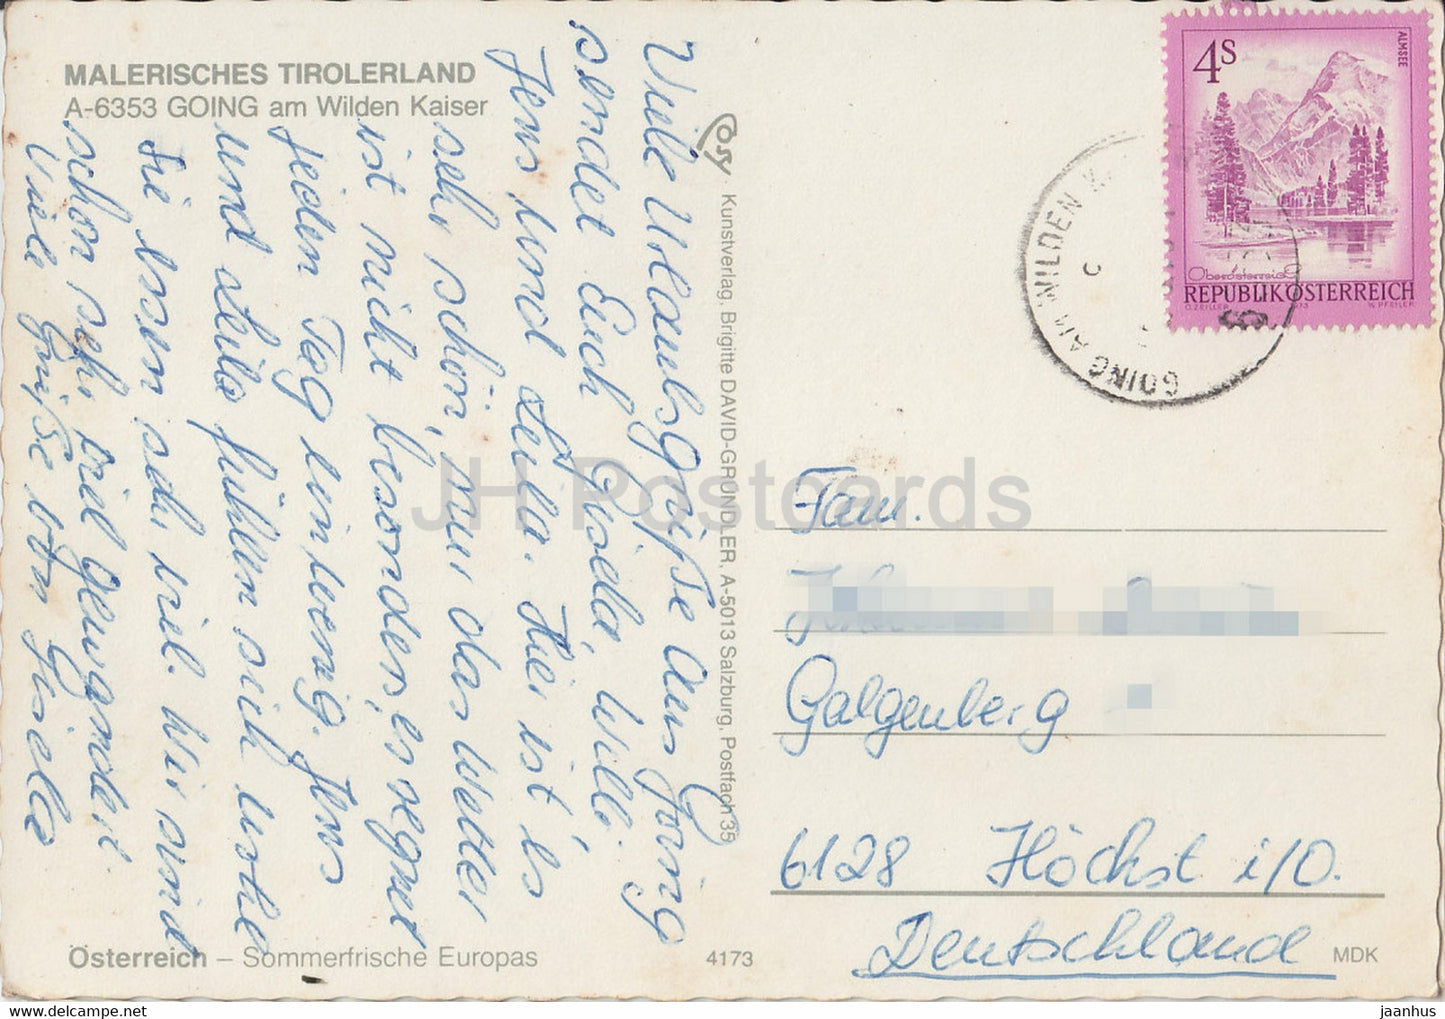 MALERISCHES TIROLERLAND
A-6353 GOING am Wilden Kaiser
Viele Urlaubsgrüße aus Going
sendet Euch Gisela, Willi
Jens und Leila. Hier ist es
sehr schön, nur das Wetter
ist nicht besonders, es regnet
jeden Tag ein wenig. Jens
und Leila fühlen sich wohl
Sie essen sehr viel. Wir sind
schon sehr viel gewandert.
Viele Grüße von Gisela
Österreich – Sommerfrische Europas
Cosy · Kunstverlag, Brigitte DAVID-GRÜNDLER, A-5013 Salzburg, Postfach 35
4173
4S
ALMSEE
Oberösterreich
REPUBLIK ÖSTERREICH
O. ZEILER
W. PFEILER
GOING AM WILDEN K
Fam.
Galgenberg
6128 Höchst i/O.
Deutschland
MDK
JH Postcards
jaanhus